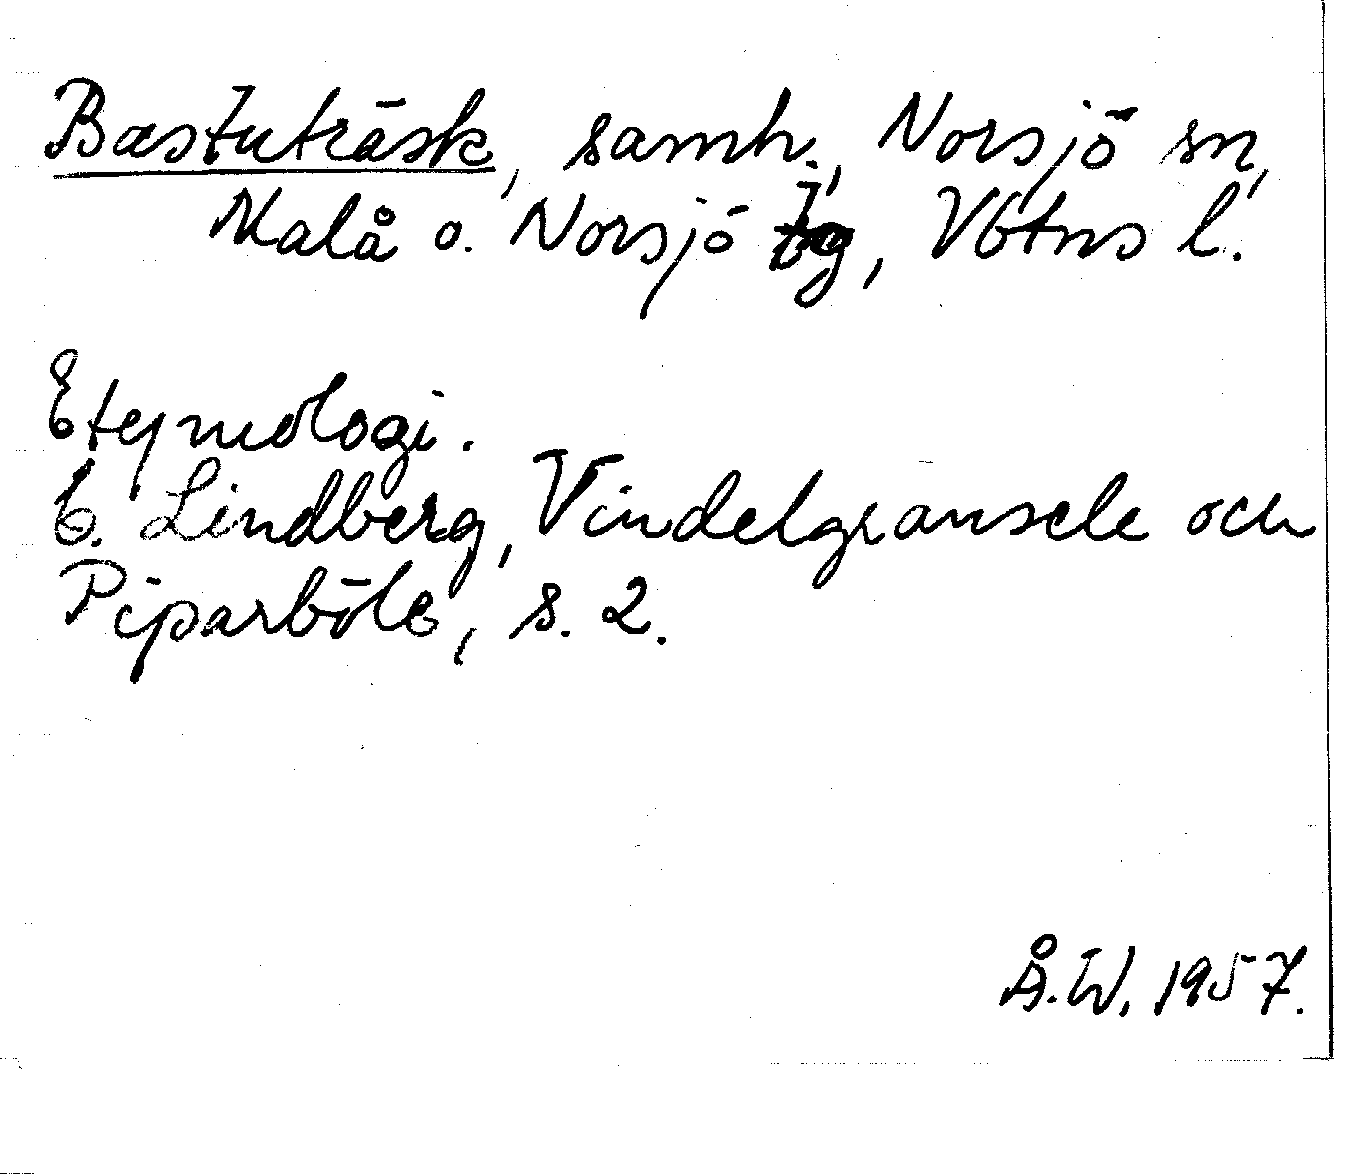 Bastuträsk, samh., Norsjö sn,
Malå o. Norsjö tg, Vbtns l.
Etymologi.
C. Lindberg, Vindelgransele och
Piparböle, s. 2.
Å.W. 1957.